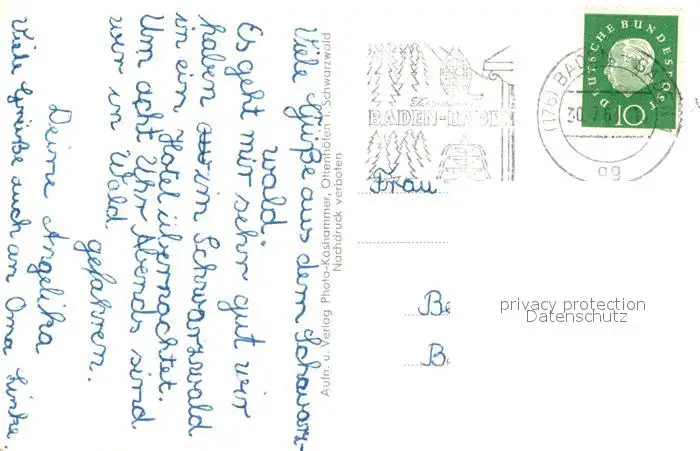 Viele Grüße aus dem Schwarz-
wald.
Es geht mir sehr gut wir
haben aus im Schwarzwald
in ein Hotel übernachtet.
Um acht Uhr Abends sind
wir in Wald
gefahren.
Deine Angelika
Viele Grüße auch an Oma Linke.
Aufn. u. Verlag Photo-Käshammer, Ottenhöfen i. Schwarzwald
Nachdruck verboten
BADEN-BADEN
(17b) BADEN
30.7.6
ag
DEUTSCHE BUNDESPOST
10
Frau
Be
B
privacy protection
Datenschutz